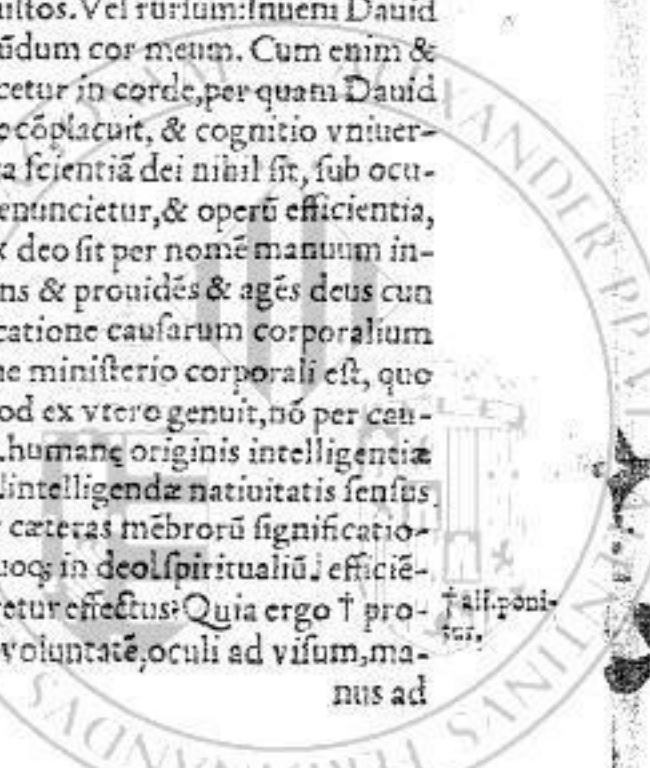 iustos. Vel rursum: Inueni Dauid
ūdum cor meum. Cum enim &
cetur in corde, per quam Dauid
cōplacuit, & cognitio vniuer-
a scientiā dei nihil sit, sub ocu-
enuncietur, & operū efficientia,
x deo sit per nomē manuum in-
ns & prouidēs & agēs deus cun
catione causarum corporalium
ne ministerio corporali est, quo
od ex vtero genuit, nō per cau-
.humanę originis intelligentiæ
intelligendæ natiuitatis sensus
r cæteras mēbrorū significatio-
uoq; in deo spiritualiū efficiē-
etur effectus? Quia ergo † pro- † ali. poni-
tur.
voluntatē, oculi ad visum, ma-
nus ad